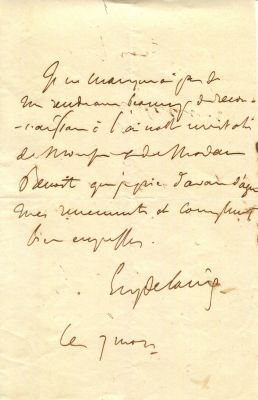 Je ne manquerai pas de
me rendre
à l'aimable invitation
de Monsieur et de Madame
Benoit que je prie d'avance d'agréer
mes remerciements et compliments
bien empressés.
Eug Delacroix
Ce 7 mars